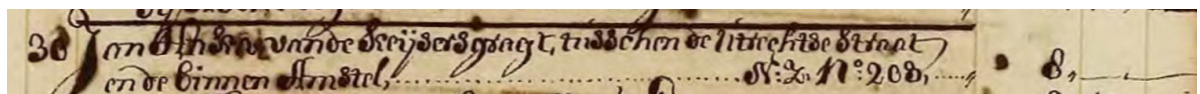 30 Jan vande Keijsersgragt, tusschen de Utrechtse straat
en de binnen Amstel, N: Z. No: 208, 8,